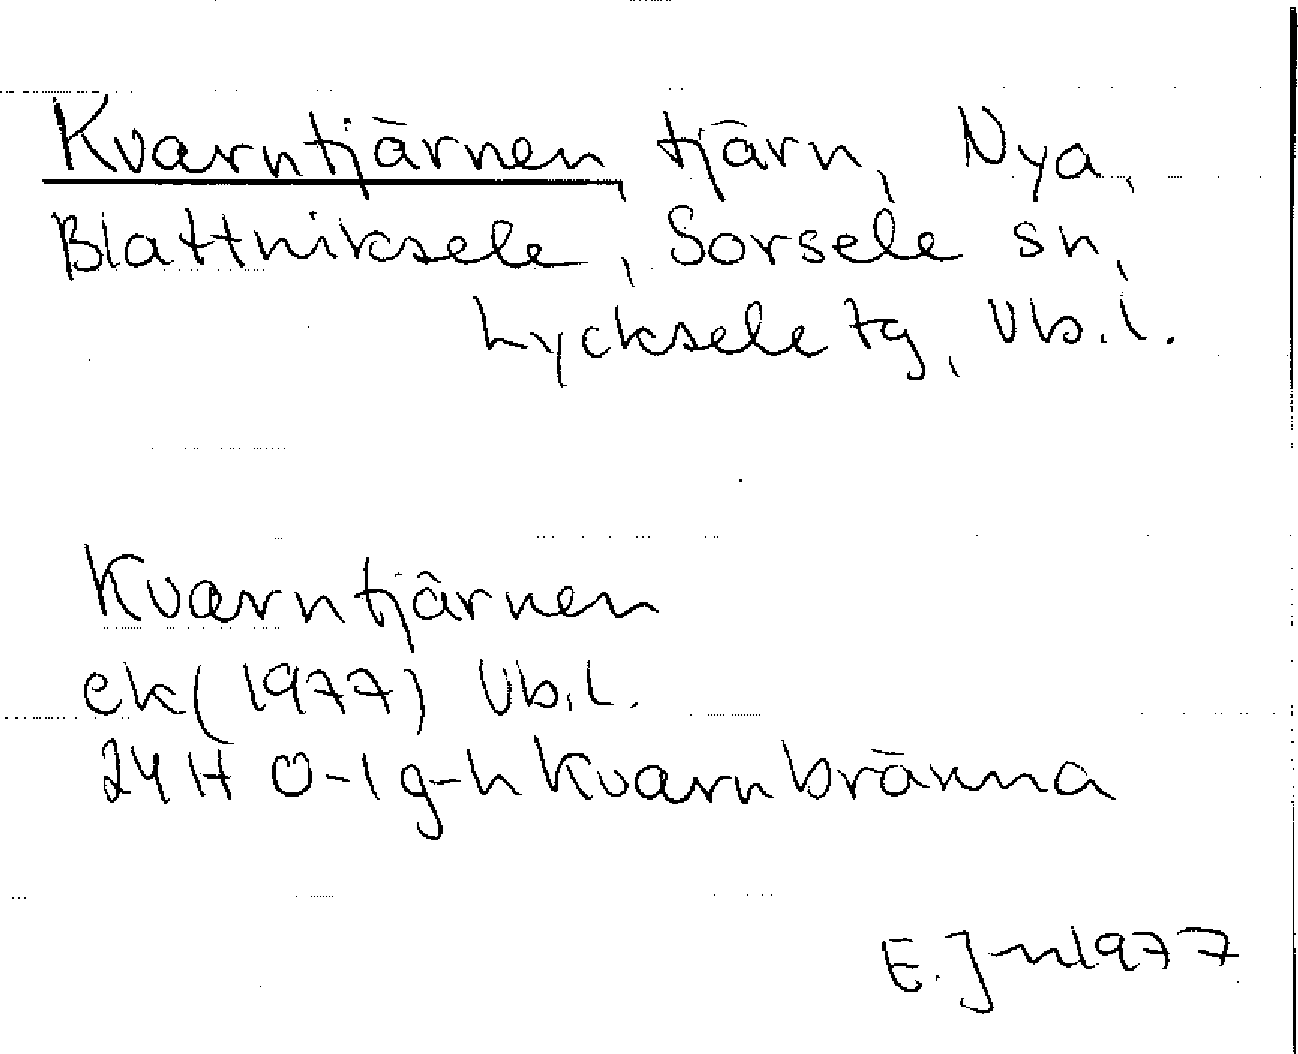 Kvarntjärnen, tjärn, Nya,
Blattniksele, Sorsele sn,
Lycksele tg, Vb.l.
Kvarntjärnen
ek (1977) Vb.l.
24H 0-1 g-h Kvarnbränna
E. J-n 1977